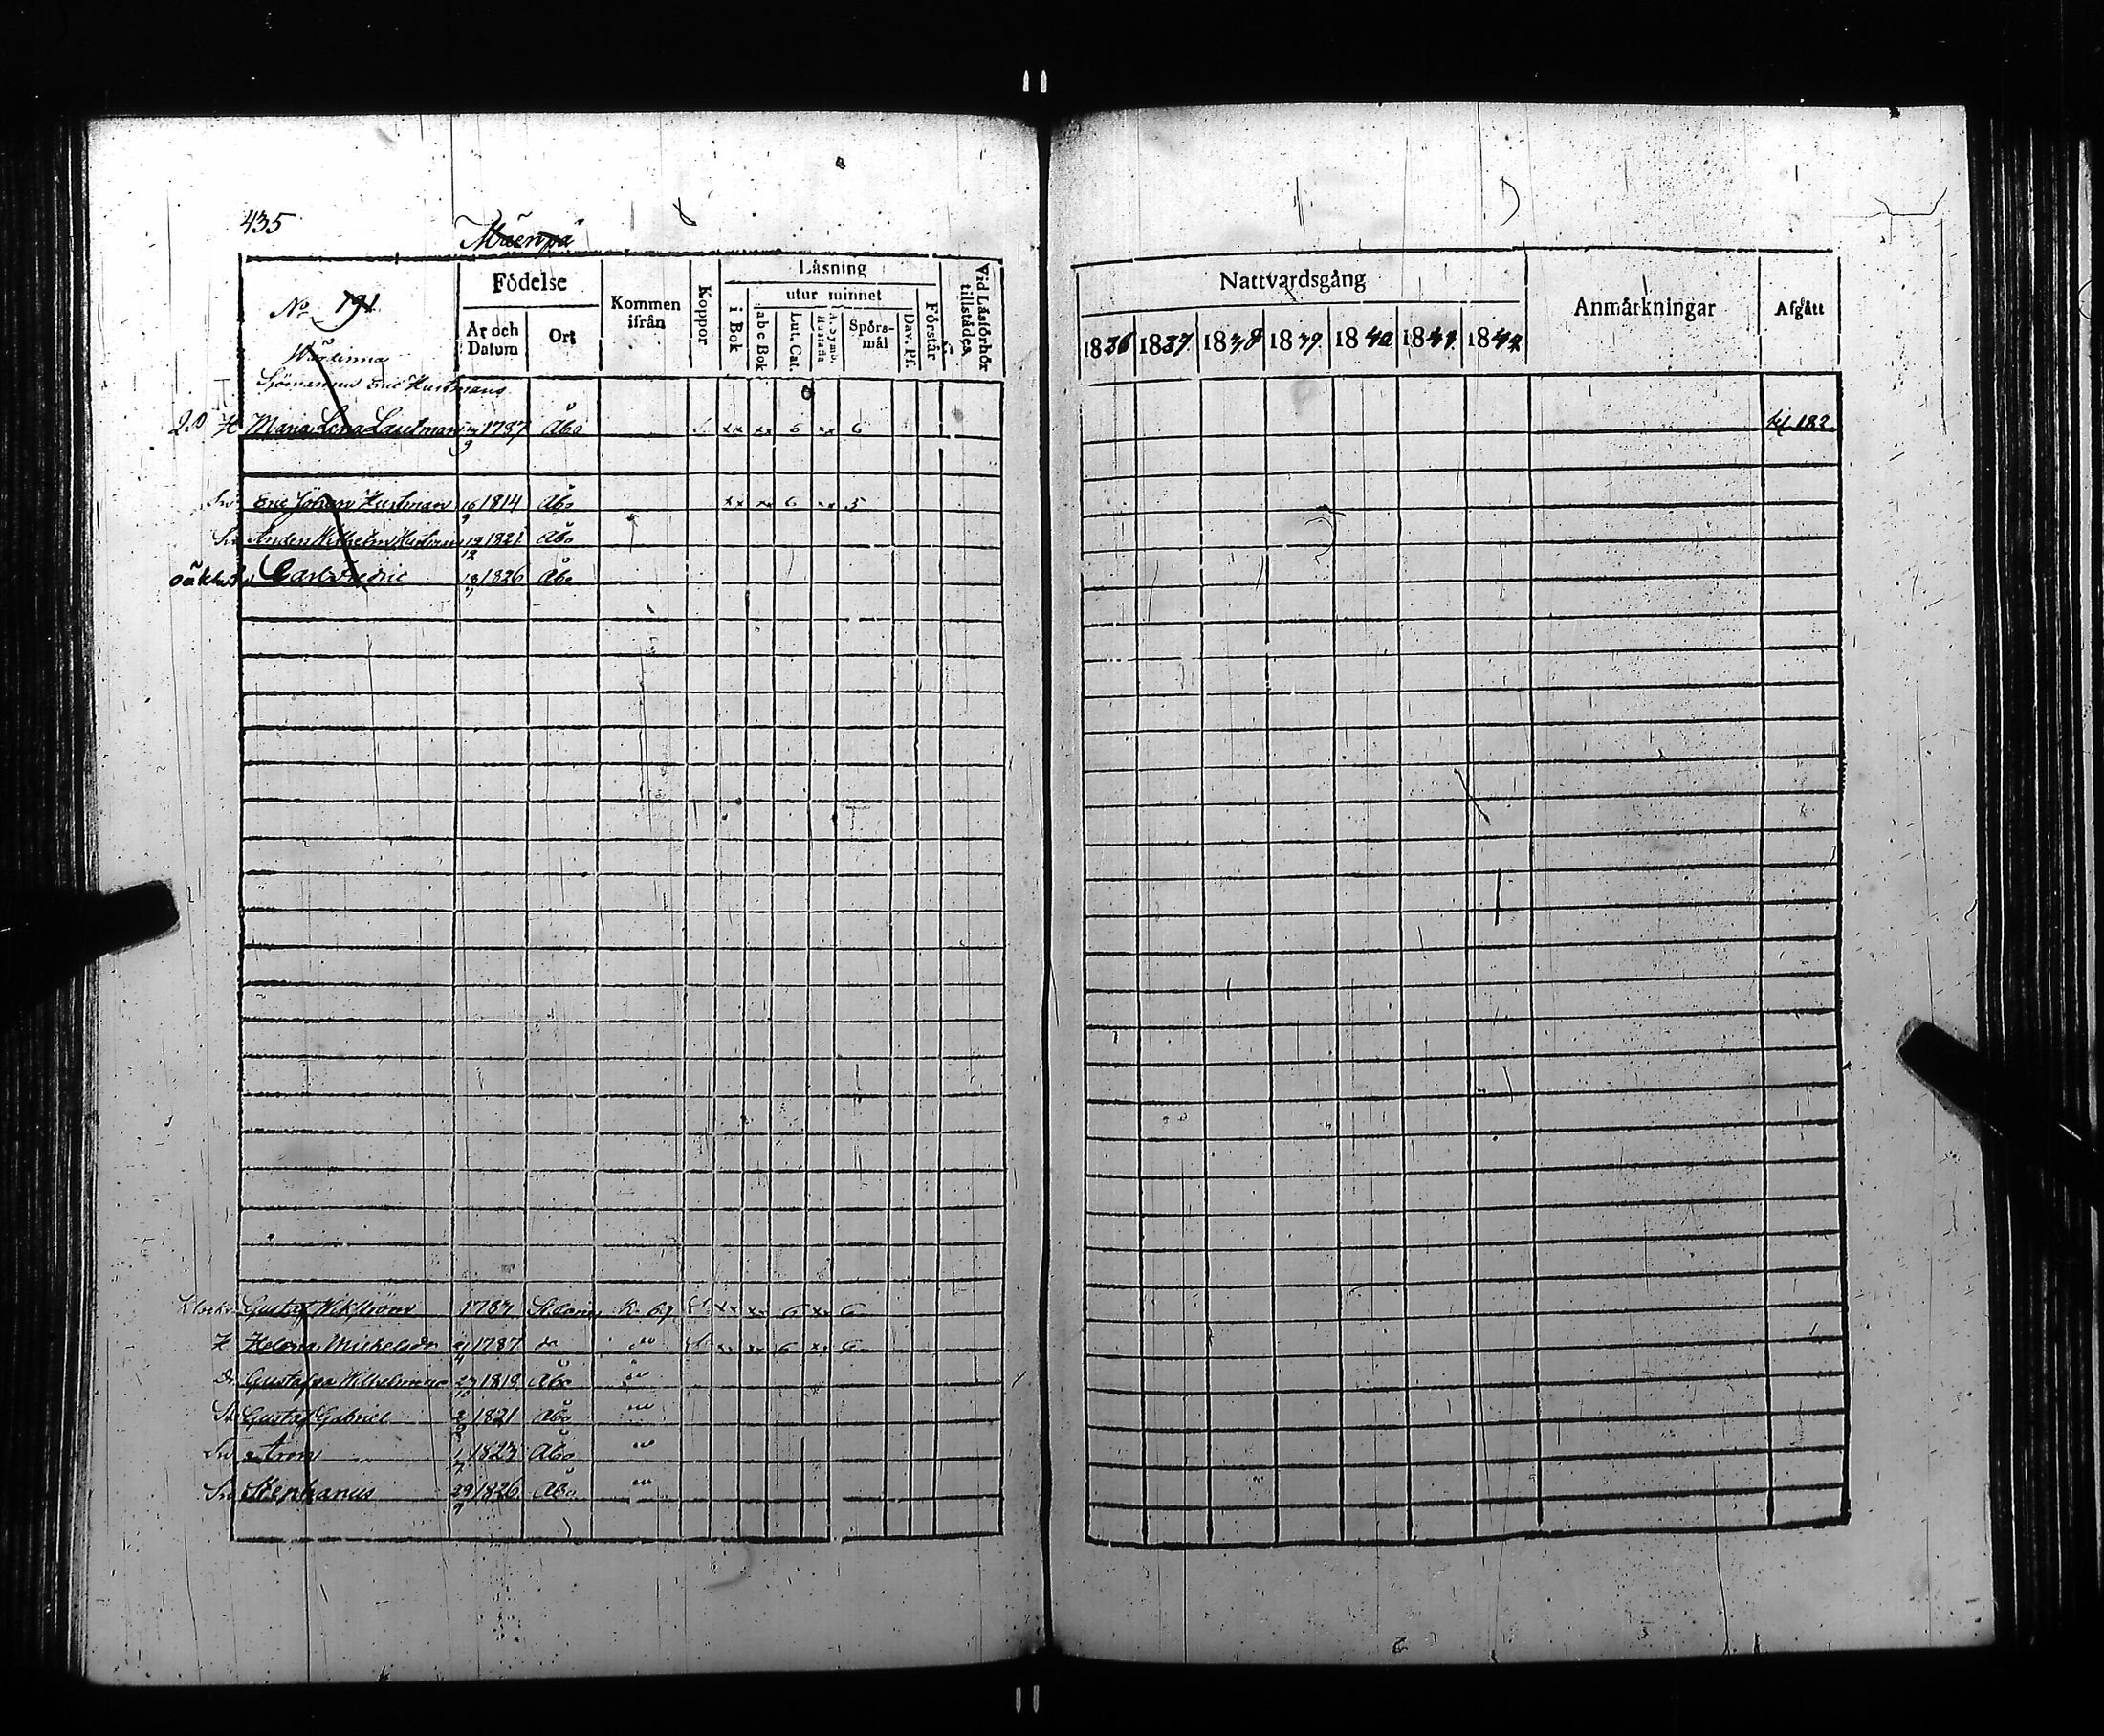 435
Mäenpä
No 191
Födelse
Ar och Datum
Ort
Kommen ifrån
Koppor
Läsning
i Bok
utur minnet
abc Bok
Lut. Cat.
A. Symb. Hustafla
Spörsmål
Dav. Ps.
Förstår
Vid Läsförhör tillstädes
Nattvardsgång
1836 1837 1838 1839 1840 1841 1842
Anmärkningar
Afgått
Wärdinna
Sjömannen Eric Hurtmans
H Maria Lena Lautman 1787 Åbo xx xx 6 xx 6
Sn Eric Johan Hurtman 16/9 1814 Åbo xx xx 6 xx 5
Sn Anders Wilhelm Hurtman 12/12 1821 Åbo
oäkta Sn Carl Fredric 13 1826 Åbo
Gustaf Wikström 1787 K. 69 xx xx 6 xx 6
H Helena Michelsdr 21/4 1787 do " xx xx 6 xx 6
Dr Gustafva Wilhelmina 27/10 1819 Åbo "
Sn Gustaf Gabriel 1821 Åbo "
Sn Aron 1/7 1823 Åbo "
Sn Stephanus 29/9 1826 Åbo "